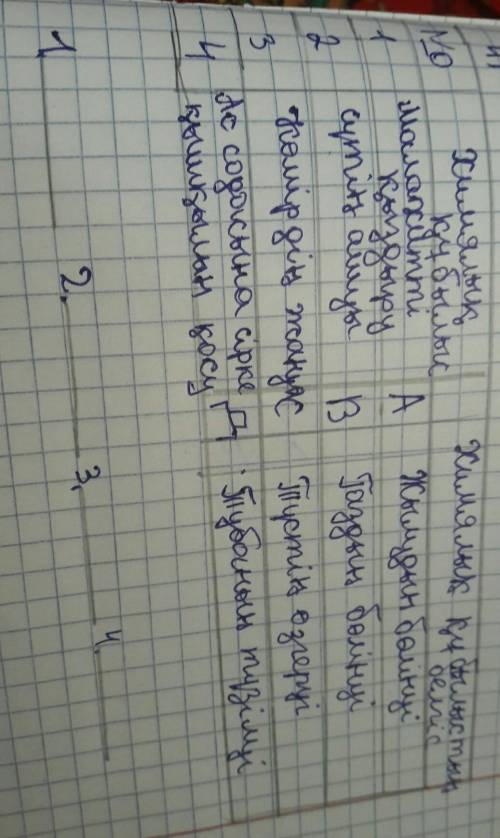 № Химялық құбылыс Химялық құбылыстың белгіс
1 Малахитті қыздыру А Жылудың бөлінуі
2 сүтің ашуы В Газдың бөлінуі
3 Көмірдің жануы С Түстің өзгеруі
4 Ас содасына сірке қышқылын қосу Д Тұбаның түзілуі
1. 2. 3. 4.